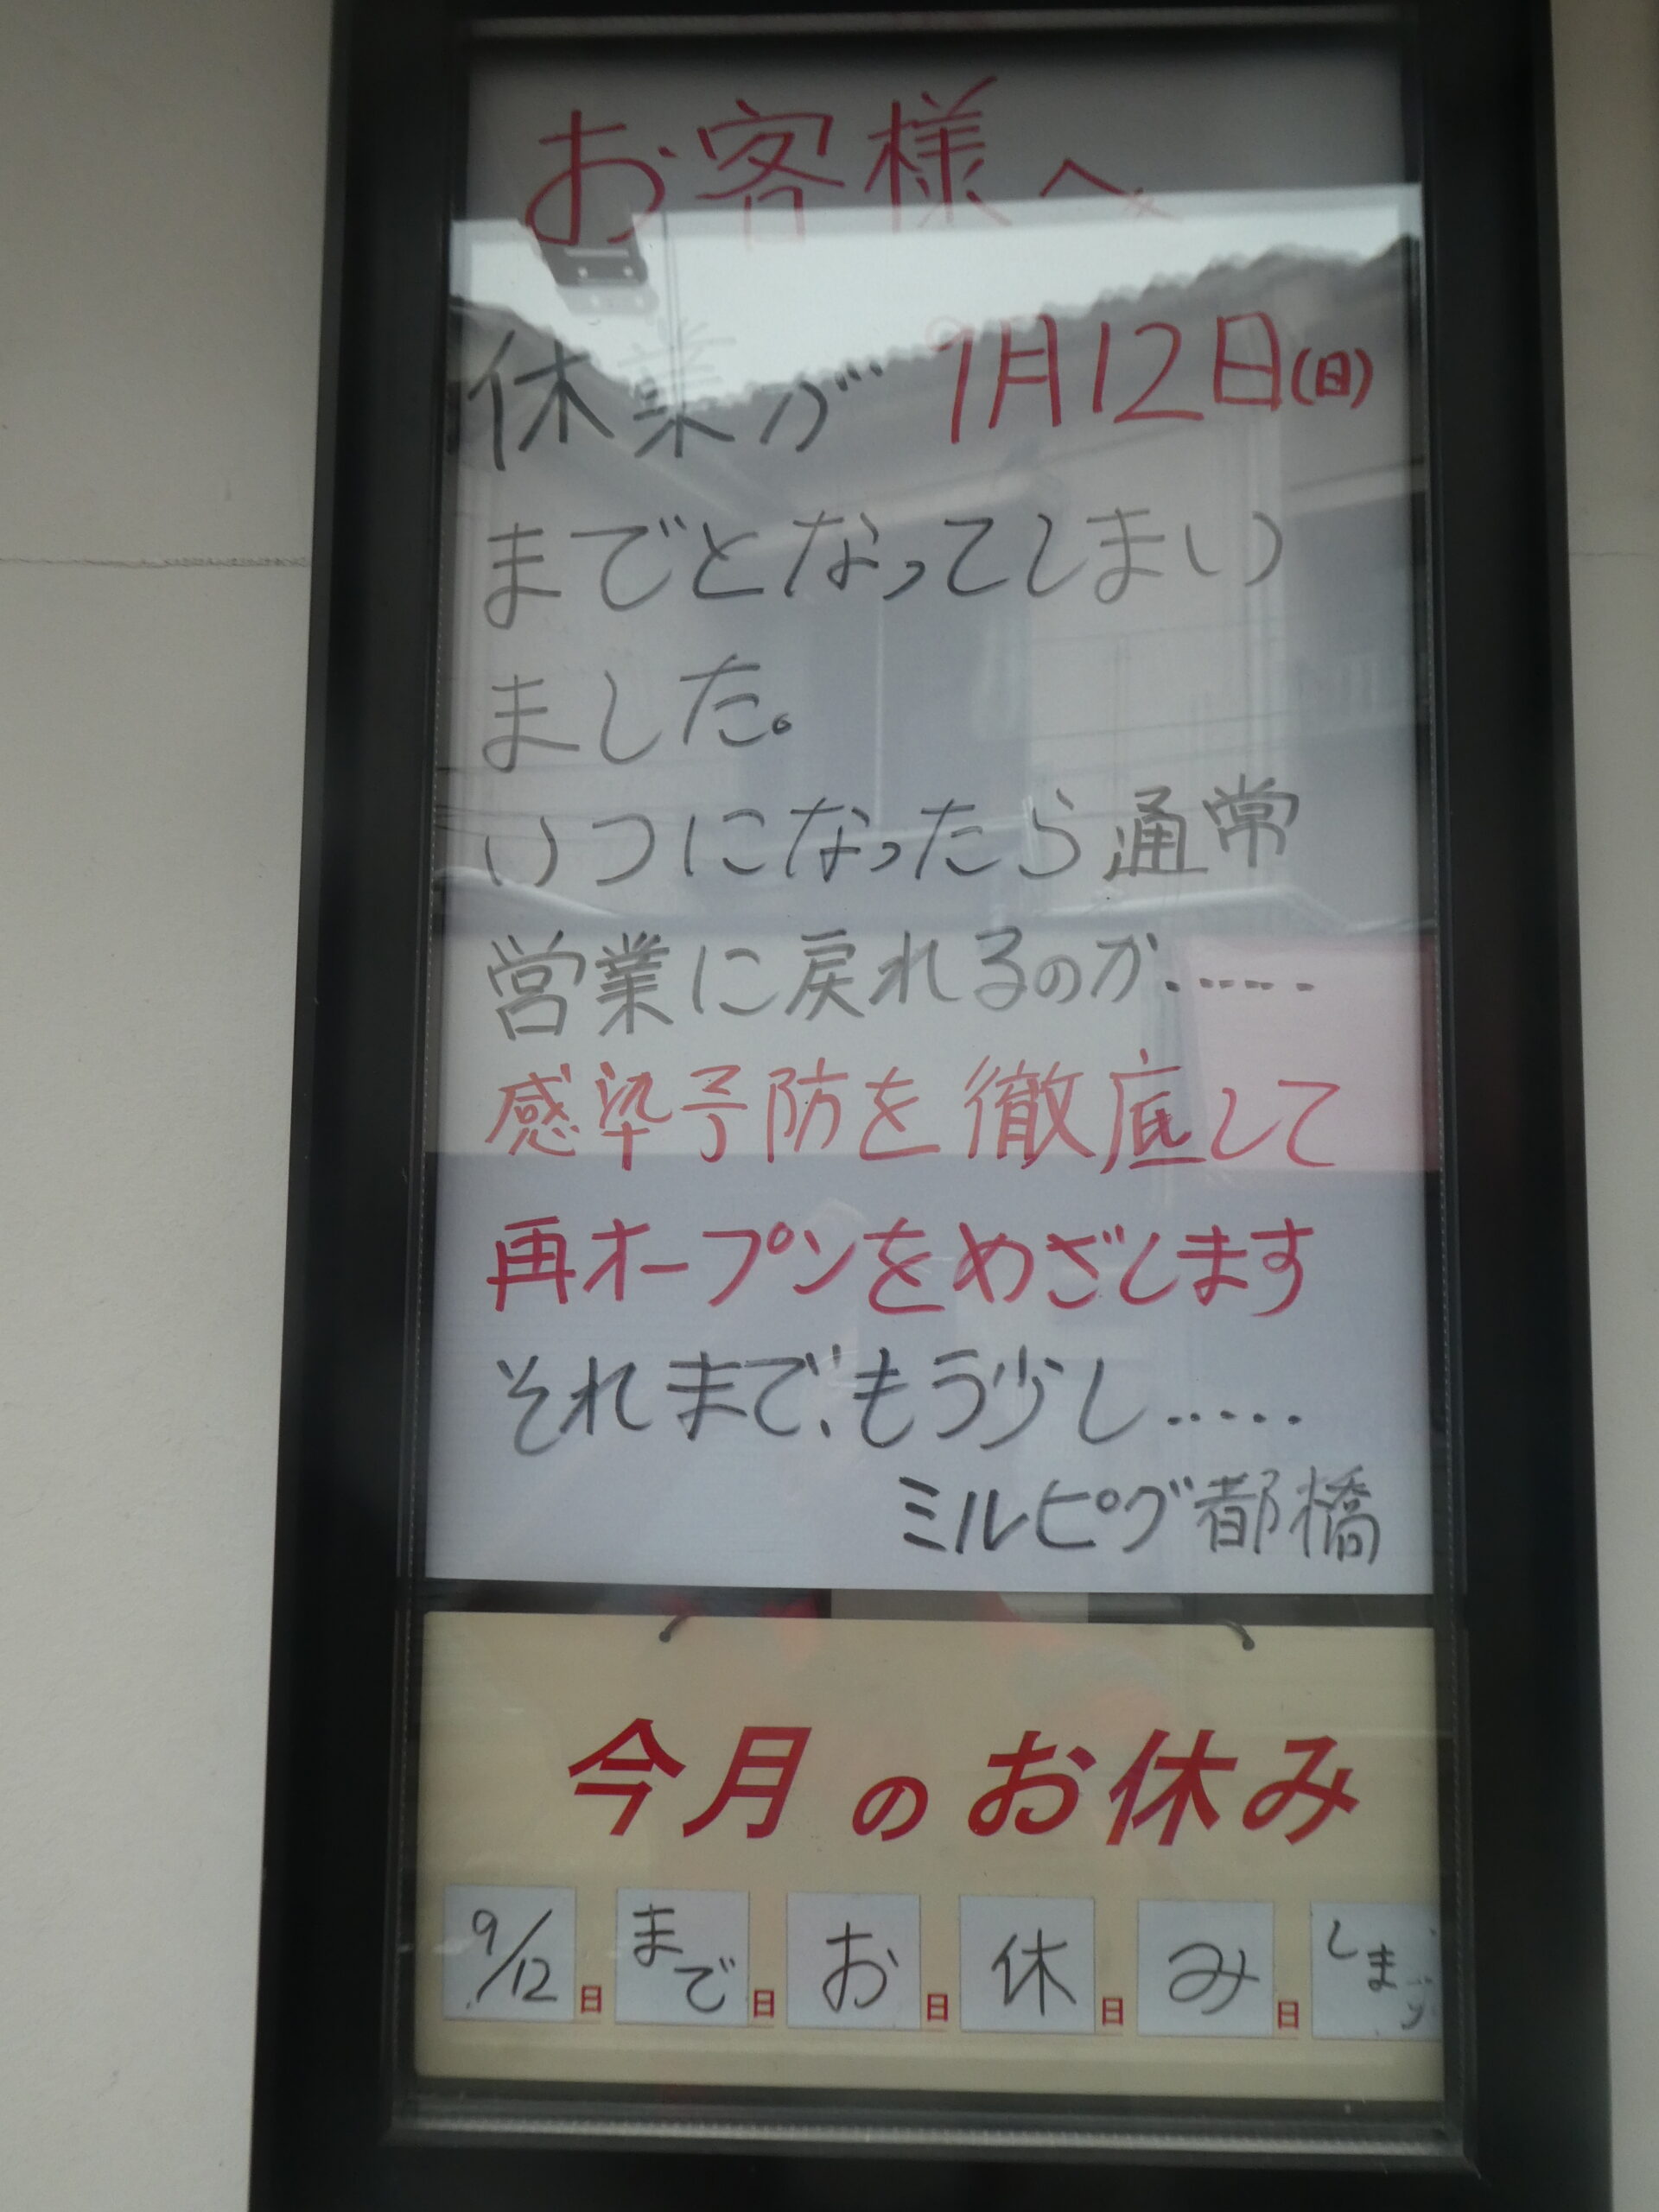 お客様へ
休業が 9月12日(日)
までとなってしまい
ました。
いつになったら通常
営業に戻れるのか……
感染予防を徹底して
再オープンをめざします
それまで、もう少し……
ミルピグ都橋
今月のお休み
9/12日まで日お日休日み日します